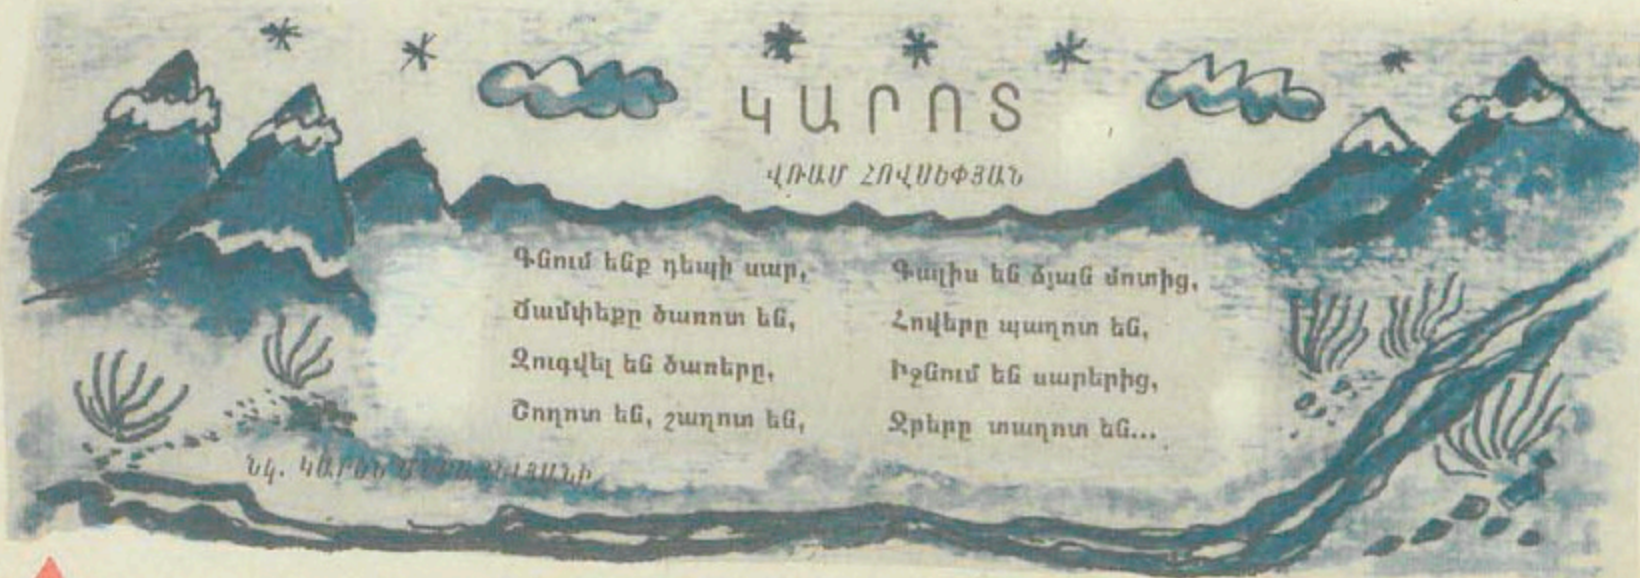 ԿԱՐՈՏ
ՎՌԱՄ ՀՈՎՍԵՓՅԱՆ
Գնում ենք դեպի սար,
Ճամփեքը ծառոտ են,
Զուգվել են ծառերը,
Շողոտ են, շաղոտ են,
Գալիս են ձյան մոտից,
Հովերը պաղոտ են,
Իջնում են սարերից,
Ջրերը տաղոտ են...
Նկ. ԿԱՐԵՆ